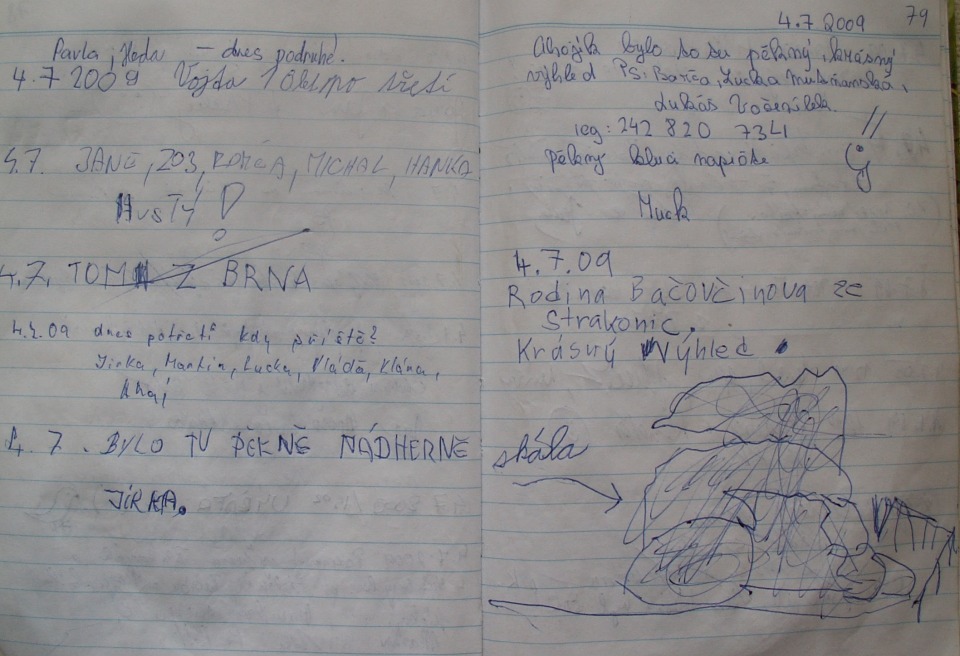 Pavla, Heda – dnes podruhé.
4.7 2009 Vojta
4.7. JANE, 203, MICHAL, HANKA
HUSTÝ!
4.7. TOM Z BRNA
4.7.09 dnes potřetí kdy příště?
Jirka, Martin, Lucka, Vláďa, Klára,
Ahoj
4. 7. BYLO TU PĚKNĚ NÁDHERNĚ
JIRKA.
4.7 2009 79
Ahojík bylo to su pěkný, krásný
výhled Ps: Lucka
Lukáš
icq: 242 820 734
pěkný kluci napište
Muck
4.7.09
Rodina Bačovčinova ze
Strakonic.
Krásný Výhled.
skála